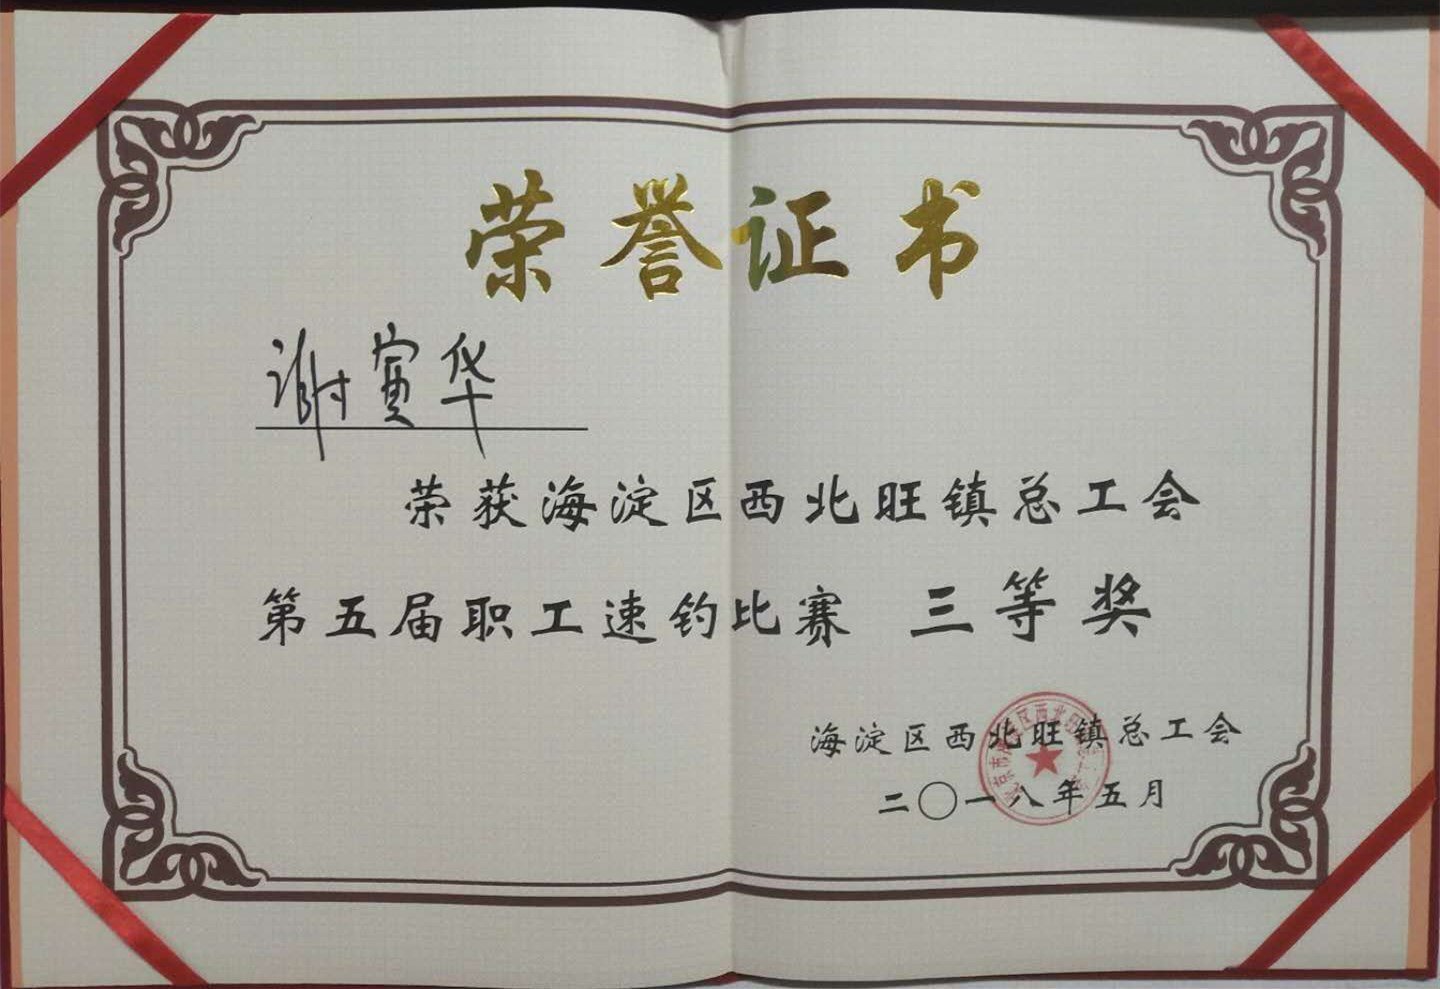 荣誉证书
谢寅华
荣获海淀区西北旺镇总工会
第五届职工速钓比赛 三等奖
海淀区西北旺镇总工会
二〇一八年五月